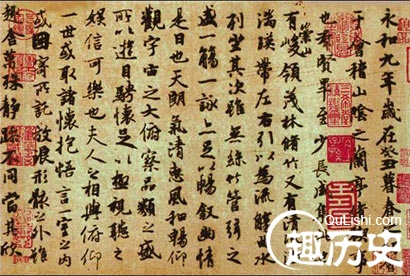 永和九年歲在癸丑暮春
于會稽山陰之蘭亭
也羣賢畢至少長咸
有崇山峻領茂林脩竹又有清
湍暎帶左右引以為流觴曲水
列坐其次雖無絲竹管弦之
盛一觴一詠亦足以暢敘幽情
是日也天朗氣清惠風和暢仰
觀宇宙之大俯察品類之盛
所以遊目騁懷足以極視聽之
娛信可樂也夫人之相與俯仰
一世或取諸懷抱悟言一室之內
或因寄所託放浪形骸之外雖
趣舍萬殊靜躁不同當其欣
QuLiShi.com
趣历史